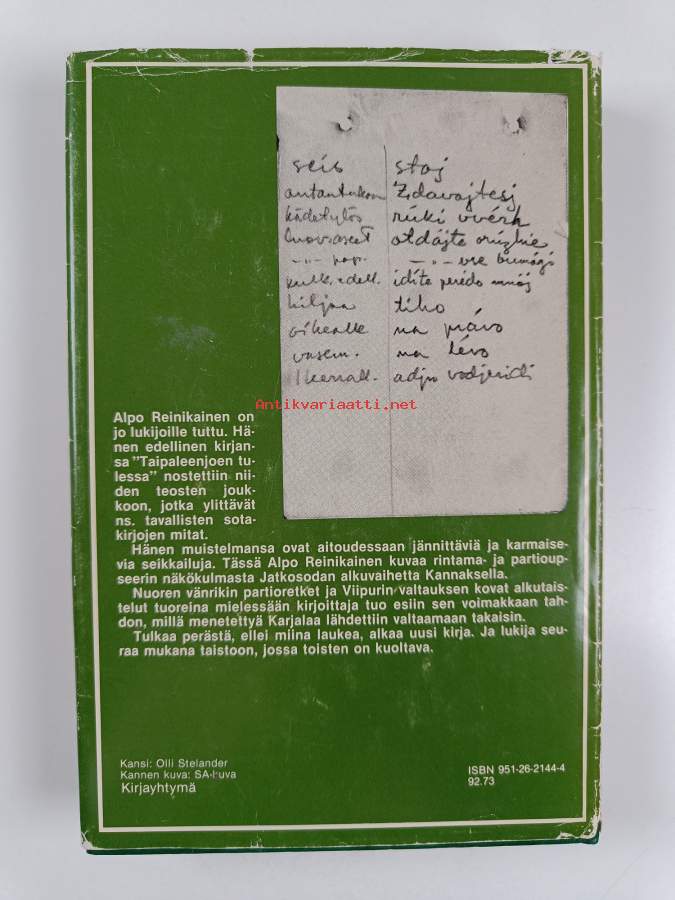 seis staj
antautukaa Zdavajtesj
kädet ylös rúki vvérh
luov. aseet otdájte orúzhie
-"- pap. -"- vse bumági
kulk. edell. idíte perédo mnój
hiljaa tího
oikealle na právo
vasem. na lévo
1 kerrall.
Antikvariaatti.net
Alpo Reinikainen on
jo lukijoille tuttu. Hä-
nen edellinen kirjan-
sa "Taipaleenjoen tu-
lessa" nostettiin nii-
den teosten jouk-
koon, jotka ylittävät
ns. tavallisten sota-
kirjojen mitat.
Hänen muistelmansa ovat aitoudessaan jännittäviä ja karmaise-
via seikkailuja. Tässä Alpo Reinikainen kuvaa rintama- ja partioup-
seerin näkökulmasta Jatkosodan alkuvaihetta Kannaksella.
Nuoren vänrikin partioretket ja Viipurin valtauksen kovat alkutais-
telut tuoreina mielessään kirjoittaja tuo esiin sen voimakkaan tah-
don, millä menetettyä Karjalaa lähdettiin valtaamaan takaisin.
Tulkaa perästä, ellei miina laukea, alkaa uusi kirja. Ja lukija seu-
raa mukana taistoon, jossa toisten on kuoltava.
Kansi: Olli Stelander
Kannen kuva: SA-kuva
Kirjayhtymä
ISBN 951-26-2144-4
92.73